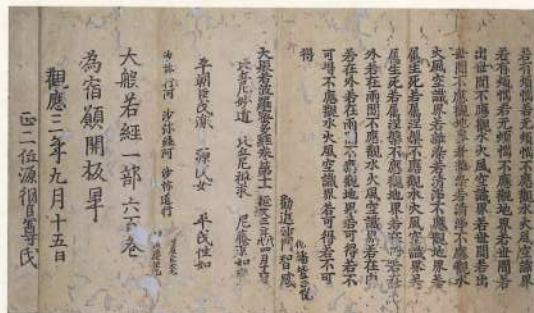 若有煩惱若無煩惱不應觀水火風空識界
若有煩惱若無煩惱不應觀地界若世間若
出世間不應觀水火風空識界若世間若出
世間不應觀地界若雜染若清淨不應觀水
火風空識界若雜染若清淨不應觀地界若
屬生死若屬涅槃不應觀水火風空識界若
屬生死若屬涅槃不應觀地界若在內若在
外若在兩間不應觀水火風空識界若在內
若在外若在兩間不應觀地界若可得若不
可得不應觀水火風空識界若可得若不可
得
勸進沙門智感
大般若波羅蜜多經卷第十一
比丘尼妙道 比丘尼
平朝臣氏 源氏女 平氏性如
沙弥行阿 沙弥經阿 沙弥道行
大般若經一部六百卷
為宿願開板畢
觀應三年九月十五日
正二位源朝臣尊氏